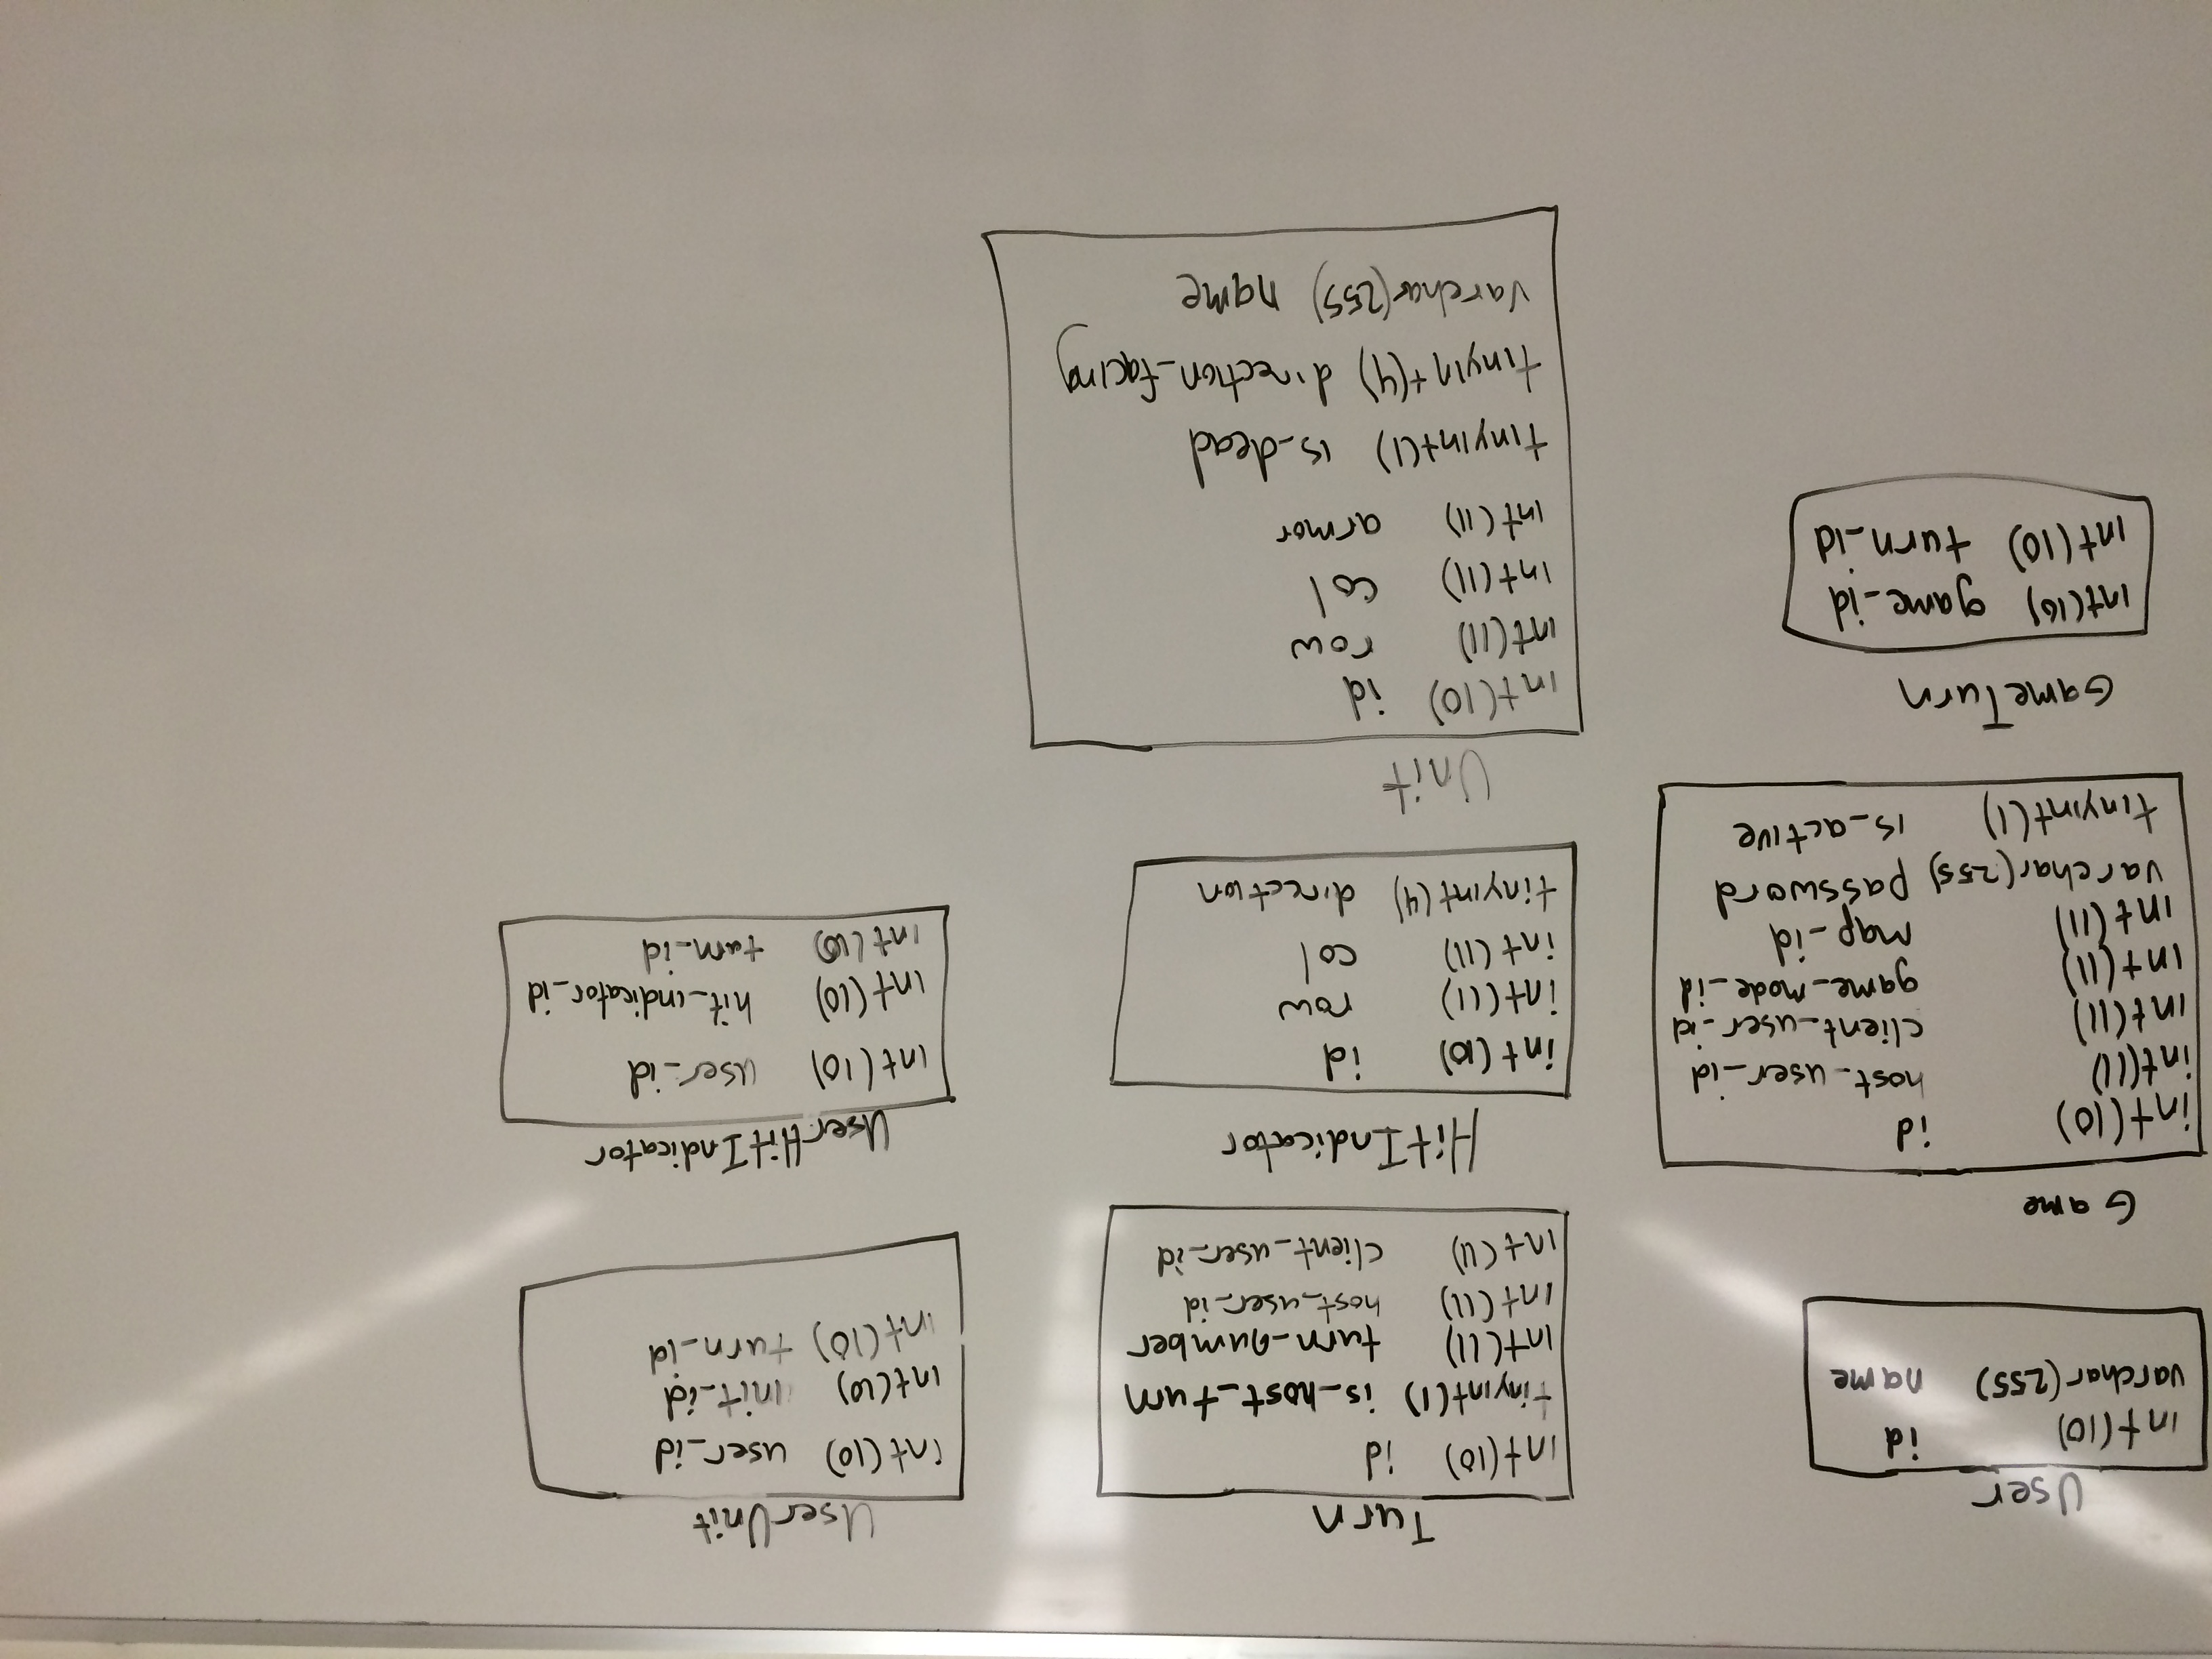 User
int(10) id
varchar(255) name
Game
int(10) id
int(11) host_user_id
int(11) client_user_id
int(11) game_mode_id
int(11) map_id
varchar(255) password
tinyint(1) is_active
GameTurn
int(10) game_id
int(10) turn_id
Turn
int(10) id
tinyint(1) is_host_turn
int(11) turn_number
int(11) host_user_id
int(11) client_user_id
HitIndicator
int(10) id
int(11) row
int(11) col
tinyint(4) direction
Unit
int(10) id
int(11) row
int(11) col
int(11) armor
tinyint(1) is_dead
tinyint(4) direction_facing
varchar(255) name
UserUnit
int(10) user_id
int(10) unit_id
int(10) turn_id
UserHitIndicator
int(10) user_id
int(10) hit_indicator_id
int(10) turn_id